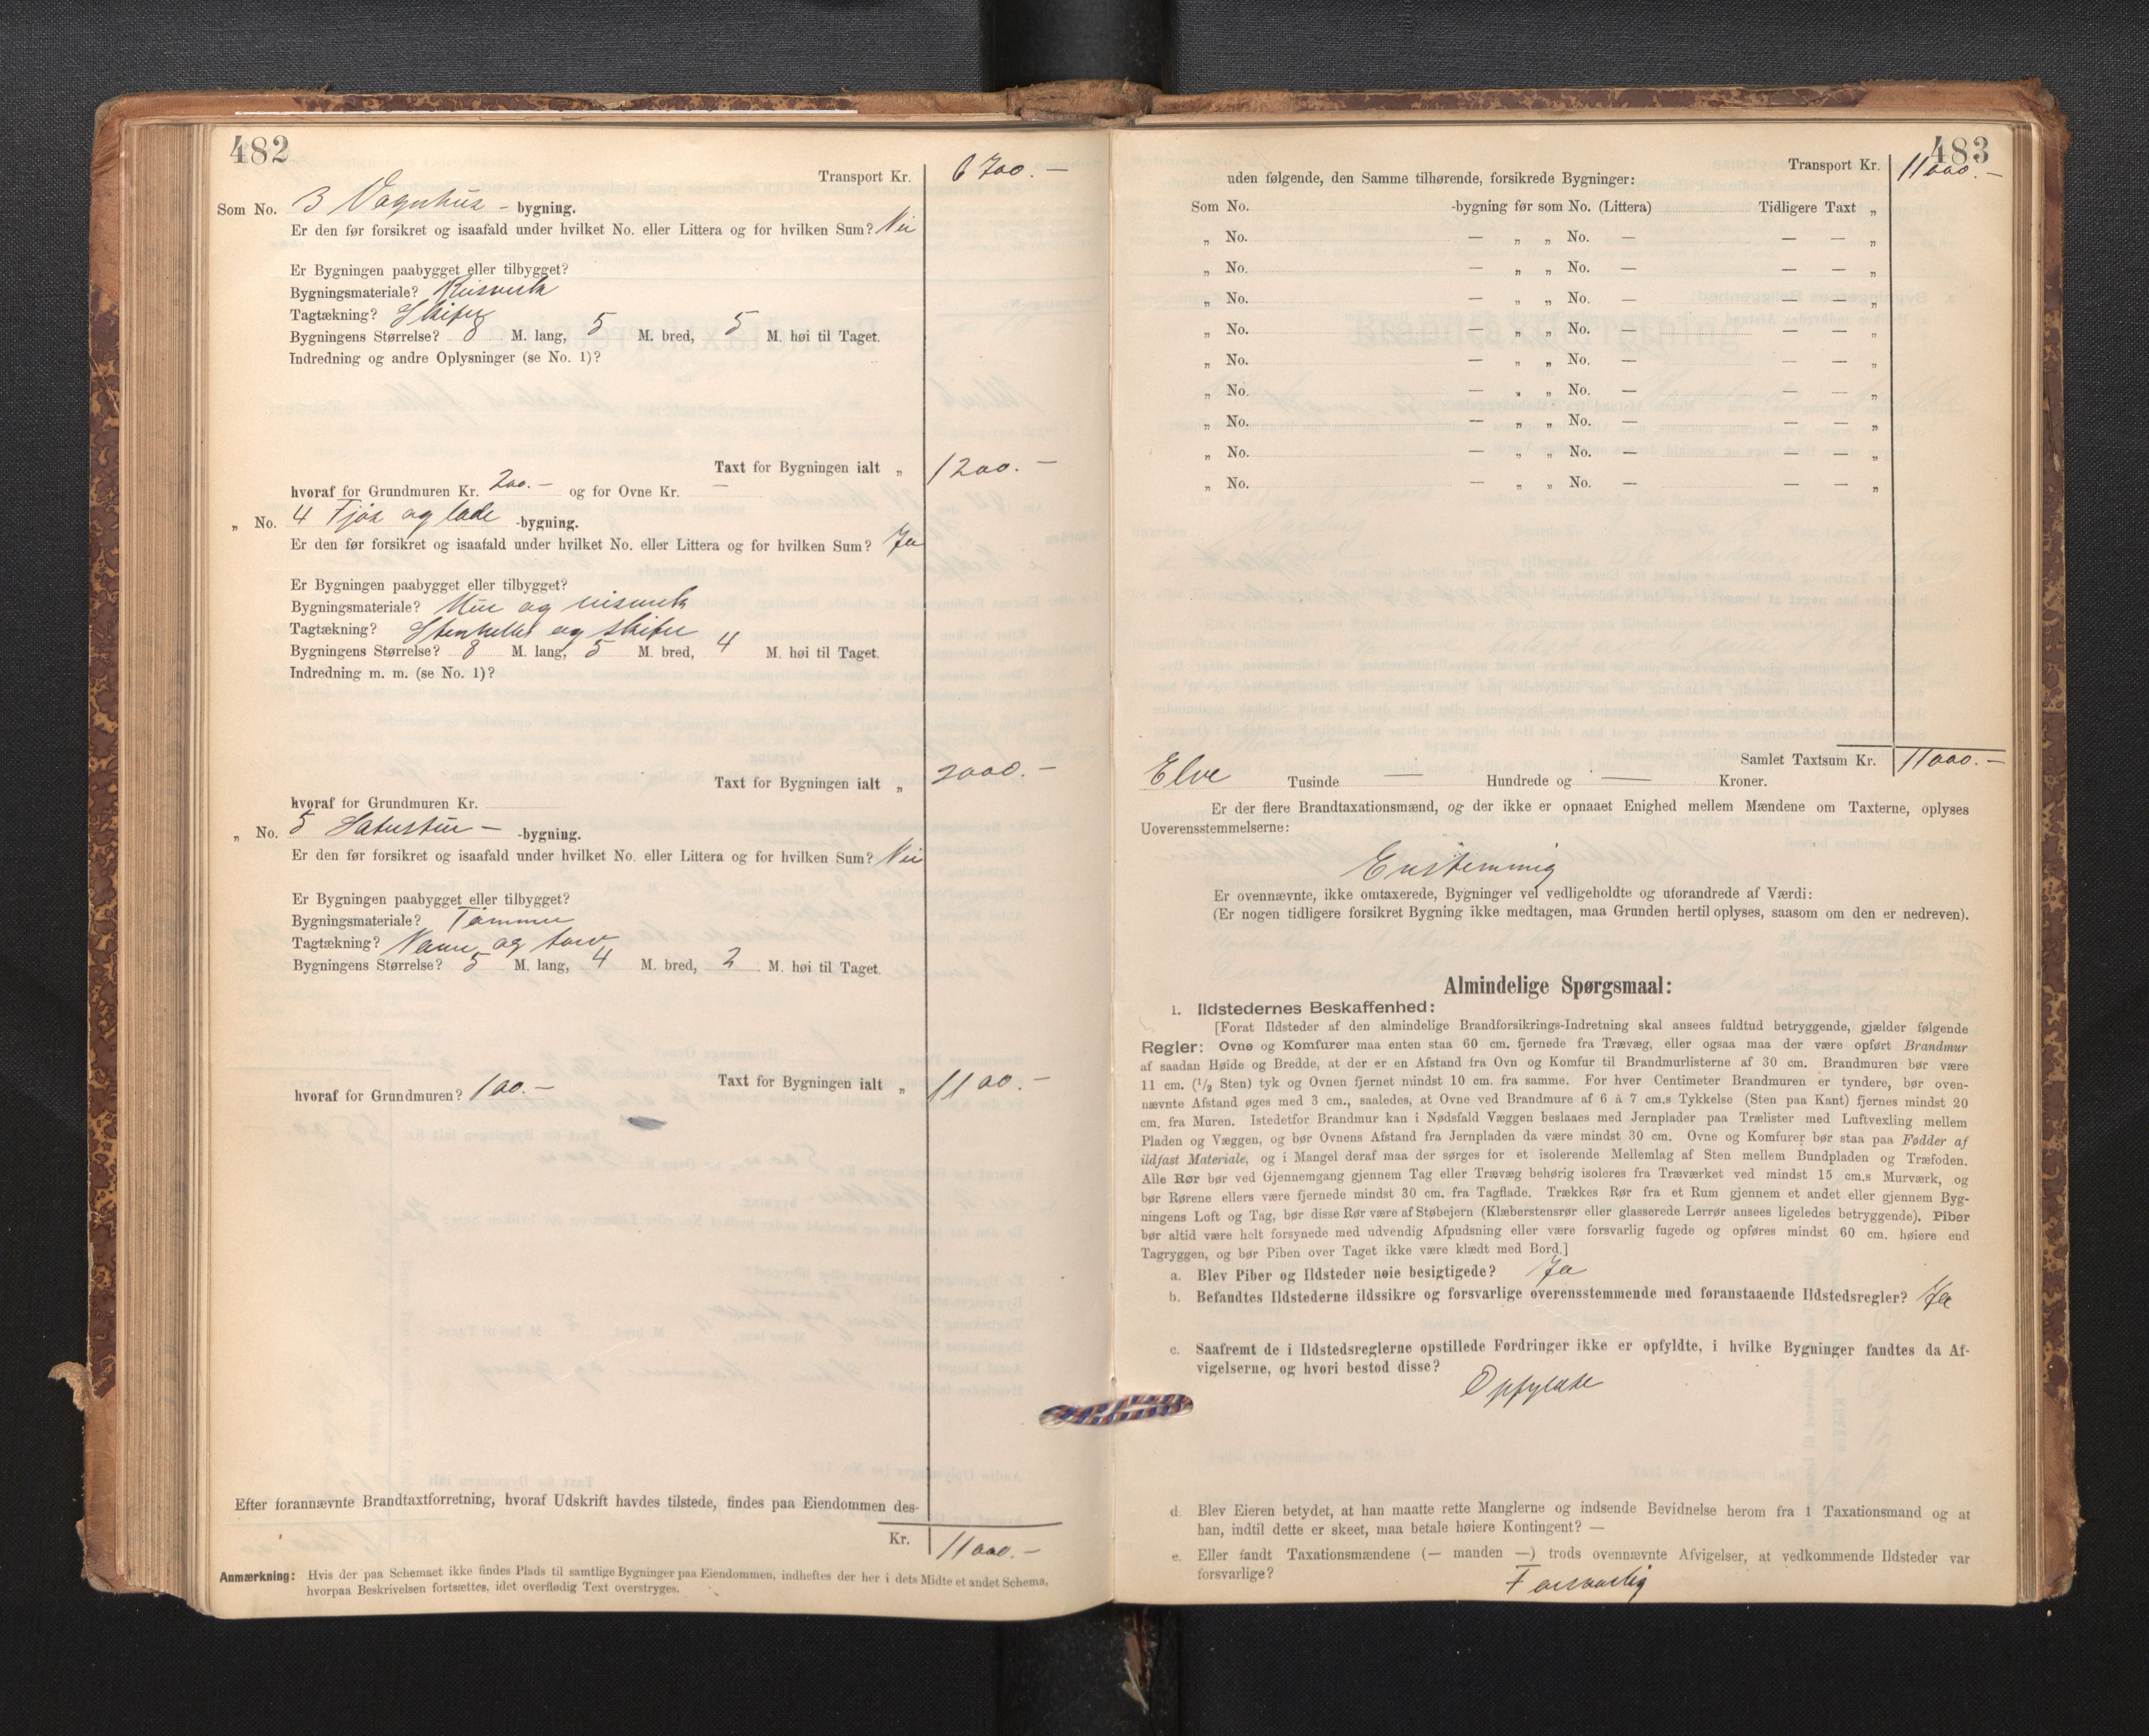 482
Transport Kr. 6700.—
Som No. 3 Vognhus - bygning.
Er den før forsikret og isaafald under hvilket No. eller Littera og for hvilken Sum? Nei
Er Bygningen paabygget eller tilbygget?
Bygningsmateriale? Reisverk
Tagtækning? Skifer
Bygningens Størrelse? 8 M. lang, 5 M. bred, 5 M. høi til Taget.
Indredning og andre Oplysninger (se No. 1)?
Taxt for Bygningen ialt „ 1200.—
hvoraf for Grundmuren Kr. 200.— og for Ovne Kr. —
„ No. 4 Fjøs og lade -bygning.
Er den før forsikret og isaafald under hvilket No. eller Littera og for hvilken Sum? Ja
Er Bygningen paabygget eller tilbygget?
Bygningsmateriale? Mur og reisverk
Tagtækning? Stenheller og skifer
Bygningens Størrelse? 8 M. lang, 5 M. bred, 4 M. høi til Taget.
Indredning m. m. (se No. 1)?
Taxt for Bygningen ialt „ 2000.—
hvoraf for Grundmuren Kr.
„ No. 5 -bygning.
Er den før forsikret og isaafald under hvilket No. eller Littera og for hvilken Sum? Nei
Er Bygningen paabygget eller tilbygget?
Bygningsmateriale? Tømmer
Tagtækning? Næver og torv
Bygningens Størrelse? 5 M. lang, 4 M. bred, 2 M. høi til Taget.
Taxt for Bygningen ialt „ 1100.—
hvoraf for Grundmuren? 100.—
Efter forannævnte Brandtaxtforretning, hvoraf Udskrift havdes tilstede, findes paa Eiendommen des-
Kr. 11000.—
Anmærkning: Hvis der paa Schemaet ikke findes Plads til samtlige Bygninger paa Eiendommen, indheftes der her i dets Midte et andet Schema,
hvorpaa Beskrivelsen fortsættes, idet overflødig Text overstryges.
483
Transport Kr. 11000.—
uden følgende, den Samme tilhørende, forsikrede Bygninger:
Som No. -bygning før som No. (Littera) Tidligere Taxt „
„ No. — „ „ No. — — — „
„ No. — „ „ No. — — — „
„ No. — „ „ No. — — — „
„ No. — „ „ No. — — — „
„ No. — „ „ No. — — — „
„ No. — „ „ No. — — — „
„ No. — „ „ No. — — — „
„ No. — „ „ No. — — — „
„ No. — „ „ No. — — — „
Samlet Taxtsum Kr. 11000.—
Elve Tusinde — Hundrede og — Kroner.
Er der flere Brandtaxationsmænd, og der ikke er opnaaet Enighed mellem Mændene om Taxterne, oplyses
Uoverensstemmelserne:
Enstemmig
Er ovennævnte, ikke omtaxerede, Bygninger vel vedligeholdte og uforandrede af Værdi:
(Er nogen tidligere forsikret Bygning ikke medtagen, maa Grunden hertil oplyses, saasom om den er nedreven).
Almindelige Spørgsmaal:
1. Ildstedernes Beskaffenhed:
[Forat Ildsteder af den almindelige Brandforsikrings-Indretning skal ansees fuldtud betryggende, gjælder følgende
Regler: Ovne og Komfurer maa enten staa 60 cm. fjernede fra Trævæg, eller ogsaa maa der være opført Brandmur
af saadan Høide og Bredde, at der er en Afstand fra Ovn og Komfur til Brandmurlisterne af 30 cm. Brandmuren bør være
11 cm. (1/2 Sten) tyk og Ovnen fjernet mindst 10 cm. fra samme. For hver Centimeter Brandmuren er tyndere, bør oven-
nævnte Afstand øges med 3 cm., saaledes, at Ovne ved Brandmure af 6 à 7 cm.s Tykkelse (Sten paa Kant) fjernes mindst 20
cm. fra Muren. Istedetfor Brandmur kan i Nødsfald Væggen beslaaes med Jernplader paa Trælister med Luftvexling mellem
Pladen og Væggen, og bør Ovnens Afstand fra Jernpladen da være mindst 30 cm. Ovne og Komfurer bør staa paa Fødder af
ildfast Materiale, og i Mangel deraf maa der sørges for et isolerende Mellemlag af Sten mellem Bundpladen og Træfoden.
Alle Rør bør ved Gjennemgang gjennem Tag eller Trævæg behørig isoleres fra Træværket ved mindst 15 cm.s Murværk, og
bør Rørene ellers være fjernede mindst 30 cm. fra Tagflade. Trækkes Rør fra et Rum gjennem et andet eller gjennem Byg-
ningens Loft og Tag, bør disse Rør være af Støbejern (Klæberstensrør eller glasserede Lerrør ansees ligeledes betryggende). Piber
bør altid være helt forsynede med udvendig Afpudsning eller være forsvarlig fugede og opføres mindst 60 cm. høiere end
Tagryggen, og bør Piben over Taget ikke være klædt med Bord.]
a. Blev Piber og Ildsteder nøie besigtigede? Ja
b. Befandtes Ildstederne ildssikre og forsvarlige overensstemmende med foranstaaende Ildstedsregler? Ja
c. Saafremt de i Ildstedsreglerne opstillede Fordringer ikke er opfyldte, i hvilke Bygninger fandtes da Af-
vigelserne, og hvori bestod disse?
Opfyldte
d. Blev Eieren betydet, at han maatte rette Manglerne og indsende Bevidnelse herom fra 1 Taxationsmand og at
han, indtil dette er skeet, maa betale høiere Kontingent? —
e. Eller fandt Taxationsmændene (— manden —) trods ovennævnte Afvigelser, at vedkommende Ildsteder var
forsvarlige?
Forsvarlig